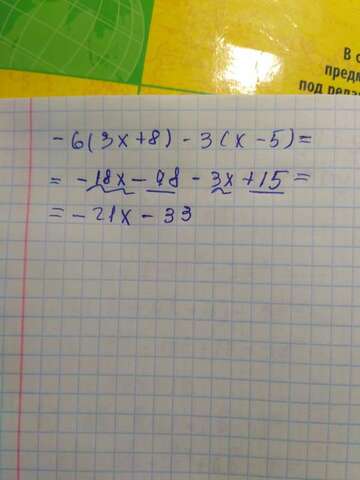 В с
предм
под реда
- 6(3x+8) - 3(x-5)=
= -18x - 48 - 3x + 15 =
= - 21x - 33